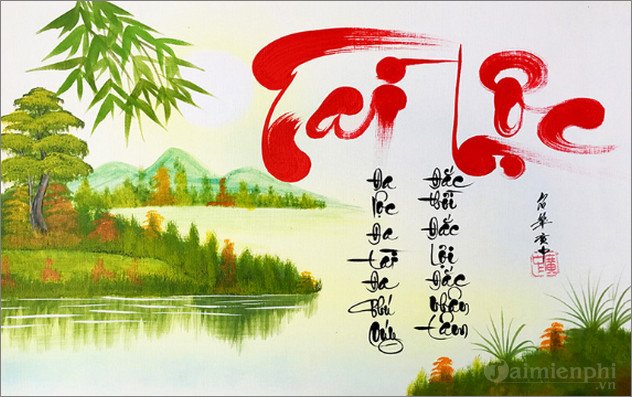 Tài Lộc
Đắc thời Đắc lợi Đắc nhân tâm
Đa lộc Đa tài Đa Phú Quý
Taimienphi
.vn